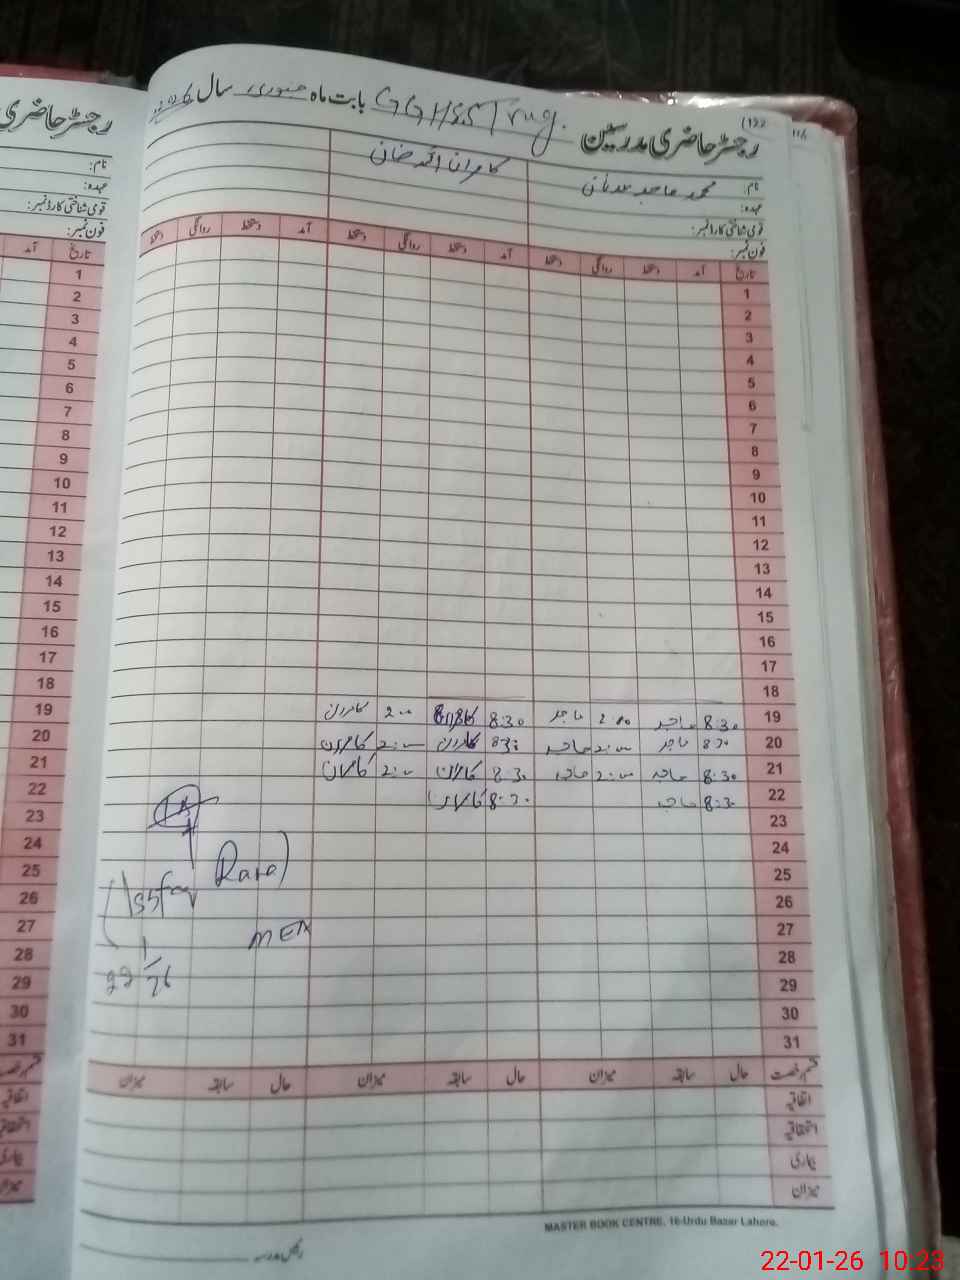 رجسٹر حاضری مدرسین GGHSS Trug. بابت ماہ جنوری سال 2026
(122)
نام: محمد ماجد عدنان کامران احمد خان
عہدہ:
قومی شناختی کارڈ نمبر:
فون نمبر:
تاریخ آمد دستخط روانگی دستخط آمد دستخط روانگی دستخط آمد دستخط روانگی دستخط
1
2
3
4
5
6
7
8
9
10
11
12
13
14
15
16
17
18
19 8:30 ماجد 2:00 ماجد 8:30 کامران 2:00 کامران
20 8:30 ماجد 2:00 ماجد 8:30 کامران 2:00 کامران
21 8:30 ماجد 2:00 ماجد 8:30 کامران 2:00 کامران
22 8:30 ماجد 8:30 کامران
23
24
25
26
27
28
29
30
31
Raza)
MEA
22/1/26
قسم رخصت حال سابقہ میزان حال سابقہ میزان حال سابقہ میزان
اتفاقیہ
استحقاقیہ
بیماری
میزان
MASTER BOOK CENTRE, 16-Urdu Bazar Lahore.
رئیس مدرسہ
رجسٹر حاضری
نام:
عہدہ:
قومی شناختی کارڈ نمبر:
فون نمبر:
تاریخ آمد
1
2
3
4
5
6
7
8
9
10
11
12
13
14
15
16
17
18
19
20
21
22
23
24
25
26
27
28
29
30
31
قسم رخصت
اتفاقیہ
استحقاقیہ
بیماری
میزان
22-01-26 10:23